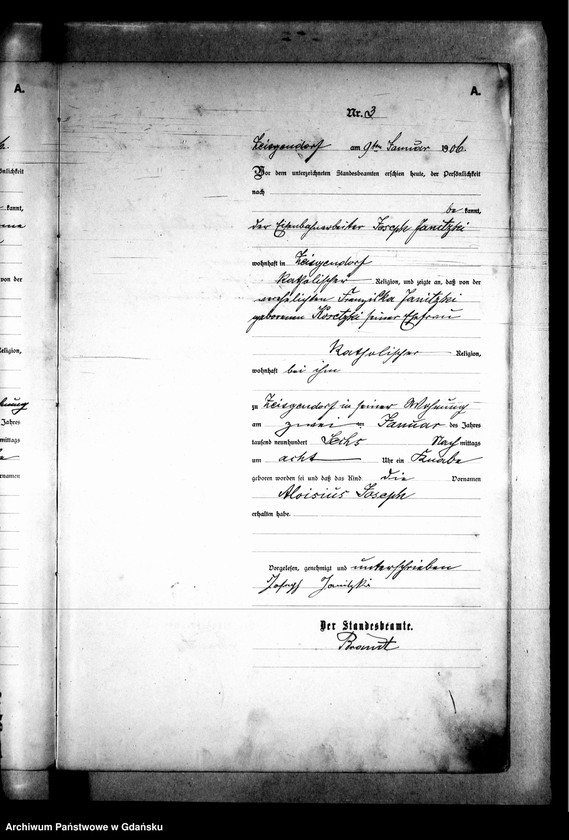 A.
A.
Nr. 3
Zeisgendorf am 9ten Januar 1906.
Vor dem unterzeichneten Standesbeamten erschien heute, der Persönlichkeit
nach
be kannt,
der Eisenbahnarbeiter Joseph Janitzki
wohnhaft in Zeisgendorf
katholischer Religion, und zeigte an, daß von der
verehelichten Franziska Janitzki
geborenen Koretzki seiner Ehefrau
katholischer Religion,
wohnhaft bei ihm
zu Zeisgendorf in seiner Wohnung
am zwei ten Januar des Jahres
tausend neunhundert Sechs Nach mittags
um acht Uhr ein Knabe
geboren worden sei und daß das Kind die Vornamen
Aloisius Joseph
erhalten habe.
Vorgelesen, genehmigt und unterschrieben
Joseph Janitzki
Der Standesbeamte.
Brandt
Archiwum Państwowe w Gdańsku